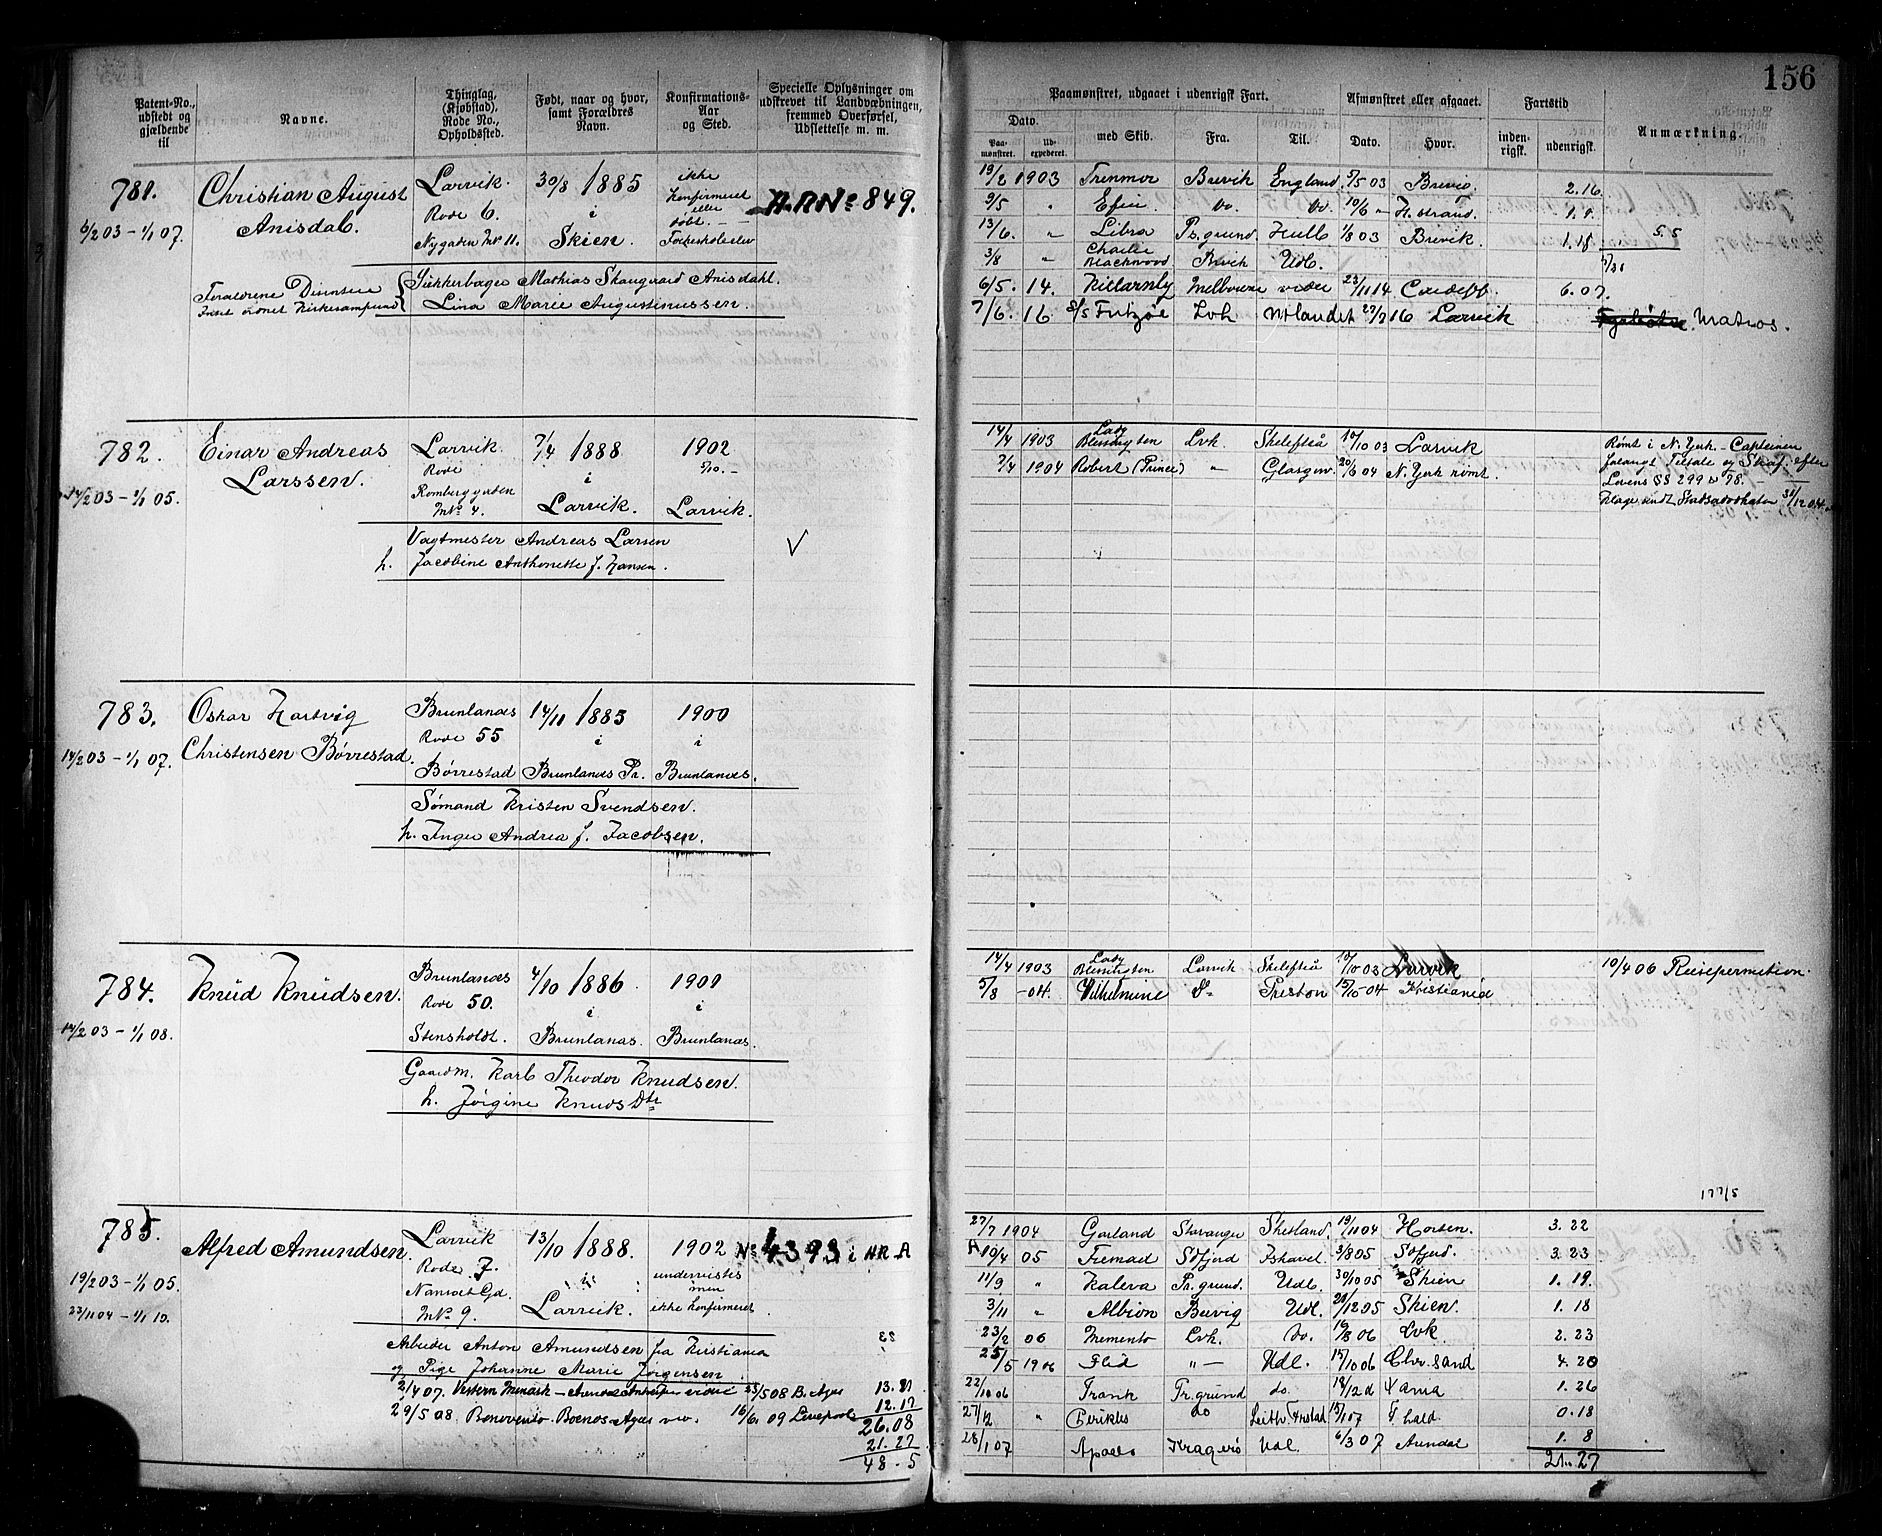 156
Patent-No., udstedt og gjældende til
Navne.
Thinglag, (Kjøbstad), Rode No., Opholdssted.
Født, naar og hvor, samt Forældres Navn.
Konfirmations-Aar og Sted.
Specielle Oplysninger om udskrevet til Landværdningen, fremmed Overførsel, Udslettelse m. m.
Paamønstret, udgaaet i udenrigsk Fart.
Dato.
Paamønstret.
Udexpederet.
med Skib.
Fra.
Til.
Afmønstret eller afgaaet.
Dato.
Hvor.
Fartstid
indenrigsk.
udenrigsk.
Anmærkning.
781.
6/2 03 - 1/1 07.
Christian August
Anisdal.
Larvik.
Rode 6.
Nygaden No 11.
30/8 1885
i
Skien.
ikke
Konfirmeret
eller
døbt.
A.R No 849.
Mathias Skaugaard Anisdahl.
Lina Marie Augustinussen.
19/2 1903 Trenmor Brevik England 7/5 03 Brevig. 2.16
9/5 " do. do. 10/6 " H.strand. 1.1
13/6. " Libra Ps.grund. Hull 1/8 03 Brevik. 1.18 5.5
3/8 " Charlie Blackwood Brvik Udl.
6/5. 14. Killarney Melbourne videre 23/11 14 Cardiff. 6.07.
7/6. 16 S/S Fritzøe Lvk Utlandet 22/9 16 Larvik Matros.
782.
14/2 03 - 1/1 05.
Einar Andreas
Larssen.
Larvik.
Rode
Romberggaden
No 4.
7/4 1888
i
Larvik.
1902
5/10. -
Larvik.
Vagtmester Andreas Larsen
h. Jacobine Anthonette f. Hansen.
14/4 1903 Lady Blessington Lvk. Skelefteå 10/10 03 Larvik
7/4 1904 Robert (Prince) " Glasgow. 20/6 04 N. York rømt.
Rømt i N. York - Capteinen
forlangt Tiltale og Straf efter
Lovens §§ 299 &amp; 98.
Klage sendt Statsadvokaten 31/12 04.
783.
14/2 03 - 1/1 07.
Oskar Hartvig
Christensen Børrestad.
Brunlanæs
Rode 55
Børrestad
14/11 1885
i
Brunlanæs Pr.
1900
i
Brunlanæs.
Sømand Kristen Svendsen.
h. Inger Andrea f. Jacobsen.
784.
14/2 03 - 1/1 08.
Knud Knudsen.
Brunlanæs
Rode 50.
Stensholdt.
4/10 1886
i
Brunlanæs.
1901
i
Brunlanæs.
Gaardm. Karl Theodor Knudsen.
h. Jørgine Knuds Dtr
14/4 1903 Lady Blessington Larvik Skelefteå 10/10 03 Larvik
5/8 - 04. Vilhelmine Do Preston 15/10-04 Kristiania
10/4 06 Reisepermition.
785.
19/2 03 - 1/1 05.
23/11 04 - 1/1 10.
Alfred Amundsen.
Larvik
Rode 7.
Nansets Gd.
No 9.
13/10 1888.
i
Larvik.
1902
undervistes
men
ikke konfirmeret
No 4393 i HR. A
Arbeider Anton Amundsen fra Kristiania
og Pige Johanne Marie Jørgensen
2/4 07. 25/5 08 B. Ayres 13.21
29/5 08. Benevento. Boenos-Ayres 16/6 09 Liverpool 12.17
26.08
21.27
48-5
27/7 1904 Garland Stavanger Shetland. 19/11 04 Horten. 3.22
19/4 05 Fremad Søfjord Ishavet 3/8 05 Søfjord. 3.23
11/9 " Kaleva Pr.grund. Udl. 30/10 05 Skien 1.19.
3/11 " Albion Brevig Udl. 21/12 05 Skien. 1.18
23/2 06 Memento Lvk. do. 19/8 06 Lvk. 2.23
25/5 1906 Flid " Udl. 15/10 06 Chr.sand 4.20
22/10 06 Frank Pr.grund do. 18/12 1.26
27/12 " Perikles do Leith 13/1 07 F hald. 0.18
28/1 07 Apollo Kragerø Udl. 6/3 07 Arendal 1.8
21..27
177/5